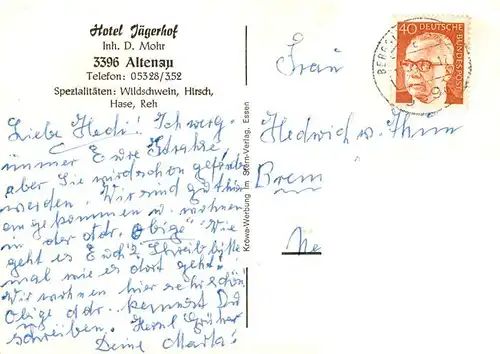 Hotel Jägerhof
Inh. D. Mohr
3396 Altenau
Telefon: 05328/352
Spezialitäten: Wildschwein, Hirsch,
Hase, Reh
Liebe Hedi! Ich verg.
immer Eure Straße,
aber Sie wird schon gefunden
werden. Wir sind gut hier
angekommen u. wohnen
in der Adr. Obige. Wie
geht es Euch? Schreib bitte
mal wie es dort geht!
Wir wohnen hier sehr schön.
Obige Adr. kannst Du
schreiben. Herzl. Grüße
Deine Marta!
Krowa-Werbung Im Stern-Verlag, Essen
40
DEUTSCHE BUNDESPOST
Frau
Hedwich v.
Brem